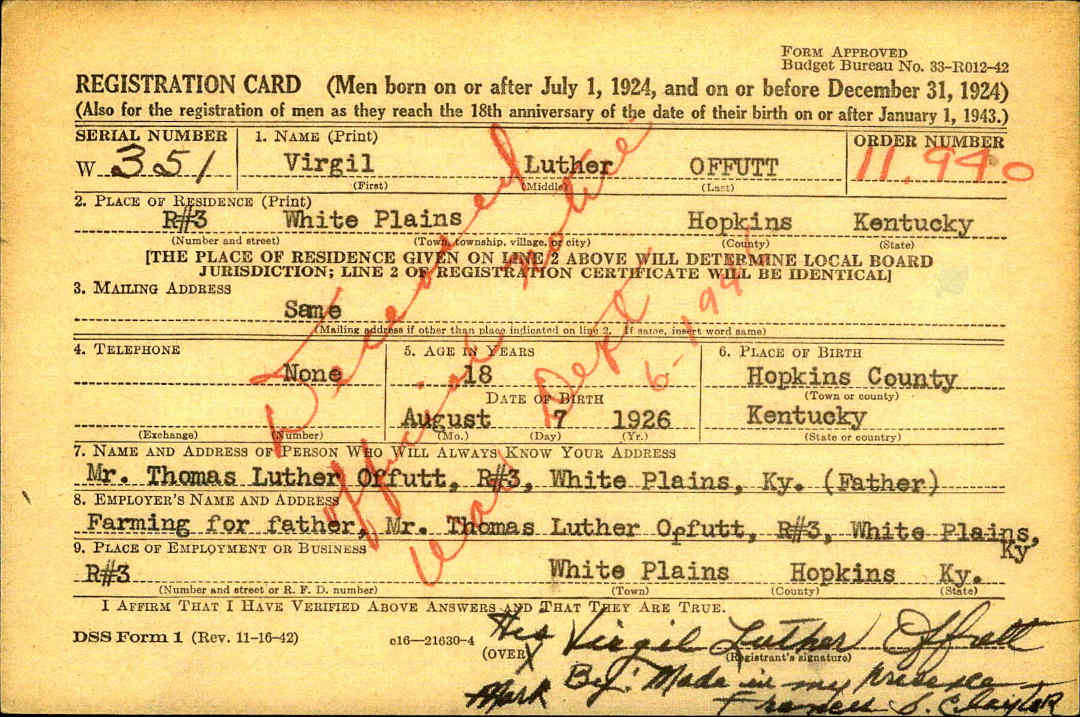 FORM APPROVED
Budget Bureau No. 33-R012-42
REGISTRATION CARD (Men born on or after July 1, 1924, and on or before December 31, 1924)
(Also for the registration of men as they reach the 18th anniversary of the date of their birth on or after January 1, 1943.)
SERIAL NUMBER 1. NAME (Print) ORDER NUMBER
W 351 Virgil Luther OFFUTT 11,940
(First) (Middle) (Last)
2. PLACE OF RESIDENCE (Print)
R#3 White Plains Hopkins Kentucky
(Number and street) (Town, township, village, or city) (County) (State)
[THE PLACE OF RESIDENCE GIVEN ON LINE 2 ABOVE WILL DETERMINE LOCAL BOARD
JURISDICTION; LINE 2 OF REGISTRATION CERTIFICATE WILL BE IDENTICAL]
3. MAILING ADDRESS
Same
(Mailing address if other than place indicated on line 2. If same, insert word same)
4. TELEPHONE 5. AGE IN YEARS 6. PLACE OF BIRTH
None 18 Hopkins County
DATE OF BIRTH (Town or county)
August 7 1926 Kentucky
(Exchange) (Number) (Mo.) (Day) (Yr.) (State or country)
7. NAME AND ADDRESS OF PERSON WHO WILL ALWAYS KNOW YOUR ADDRESS
Mr. Thomas Luther Offutt, R#3, White Plains, Ky. (Father)
8. EMPLOYER'S NAME AND ADDRESS
Farming for father, Mr. Thomas Luther Opfutt, R#3, White Plains,
Ky
9. PLACE OF EMPLOYMENT OR BUSINESS
R#3 White Plains Hopkins Ky.
(Number and street or R. F. D. number) (Town) (County) (State)
I AFFIRM THAT I HAVE VERIFIED ABOVE ANSWERS AND THAT THEY ARE TRUE.
DSS Form 1 (Rev. 11-16-42) c16—21630-4 His Virgil Luther Offutt
(OVER) X (Registrant's signature)
Mark By: Made in my presence
Frances S.
Deceased
Official notice
War Dept